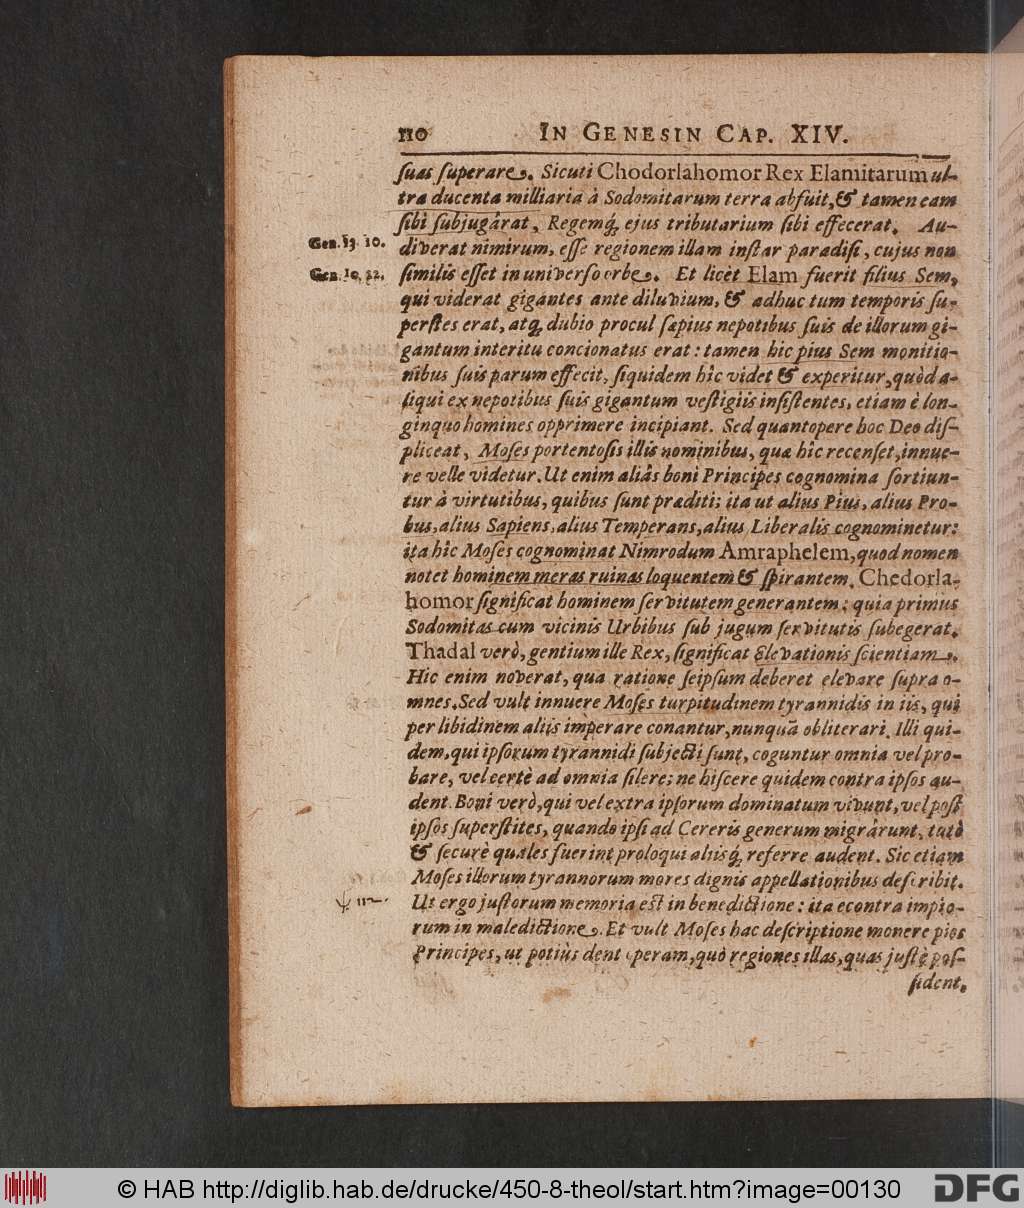 110 IN GENESIN CAP. XIV.
suas superare. Sicuti Chodorlahomor Rex Elamitarum ul-
tra ducenta milliaria à Sodomitarum terra abfuit, & tamen eam
sibi subjugârat, Regemq́; ejus tributarium sibi effecerat. Au-
Gen. 13. 10. diverat nimirum, esse regionem illam instar paradisi, cujus non
Gen. 10. 22. similis esset in universo orbe. Et licèt Elam fuerit filius Sem,
qui viderat gigantes ante diluvium, & adhuc tum temporis su-
perstes erat, atq; dubio procul sæpius nepotibus suis de illorum gi-
gantum interitu concionatus erat: tamen hic pius Sem monitio-
nibus suis parum effecit, siquidem hîc videt & experitur, quòd a-
liqui ex nepotibus suis gigantum vestigiis insistentes, etiam è lon-
ginquo homines opprimere incipiant. Sed quantopere hoc Deo dis-
pliceat, Moses portentosis illis nominibus, quæ hîc recenset, innue-
re velle videtur. Ut enim aliàs boni Principes cognomina sortiun-
tur à virtutibus, quibus sunt præditi; ita ut alius Pius, alius Pro-
bus, alius Sapiens, alius Temperans, alius Liberalis cognominetur:
ita hîc Moses cognominat Nimrodum Amraphelem, quod nomen
notet hominem meras ruinas loquentem & spirantem. Chedorla-
homor significat hominem servitutem generantem: quia primus
Sodomitas cum vicinis Urbibus sub jugum servitutis subegerat.
Thadal verò, gentium ille Rex, significat Elevationis scientiam.
Hic enim noverat, qua ratione seipsum deberet elevare supra o-
mnes. Sed vult innuere Moses turpitudinem tyrannidis in iis, qui
per libidinem aliis imperare conantur, nunquã obliterari. Illi qui-
dem, qui ipsorum tyrannidi subjecti sunt, coguntur omnia vel pro-
bare, vel certè ad omnia silere; ne hiscere quidem contra ipsos au-
dent. Boni verò, qui vel extra ipsorum dominatum vivunt, vel post
ipsos superstites, quando ipsi ad Cereris generum migrârunt, tutò
& securè quales fuerint proloqui aliisq́; referre audent. Sic etiam
Moses illorum tyrannorum mores dignis appellationibus describit.
ψ 112. Ut ergo justorum memoria est in benedictione: ita econtra impio-
rum in maledictione. Et vult Moses hac descriptione monere pios
Principes, ut potiùs dent operam, quò regiones illas, quas justè pos-
sident,
© HAB http://diglib.hab.de/drucke/450-8-theol/start.htm?image=00130
DFG